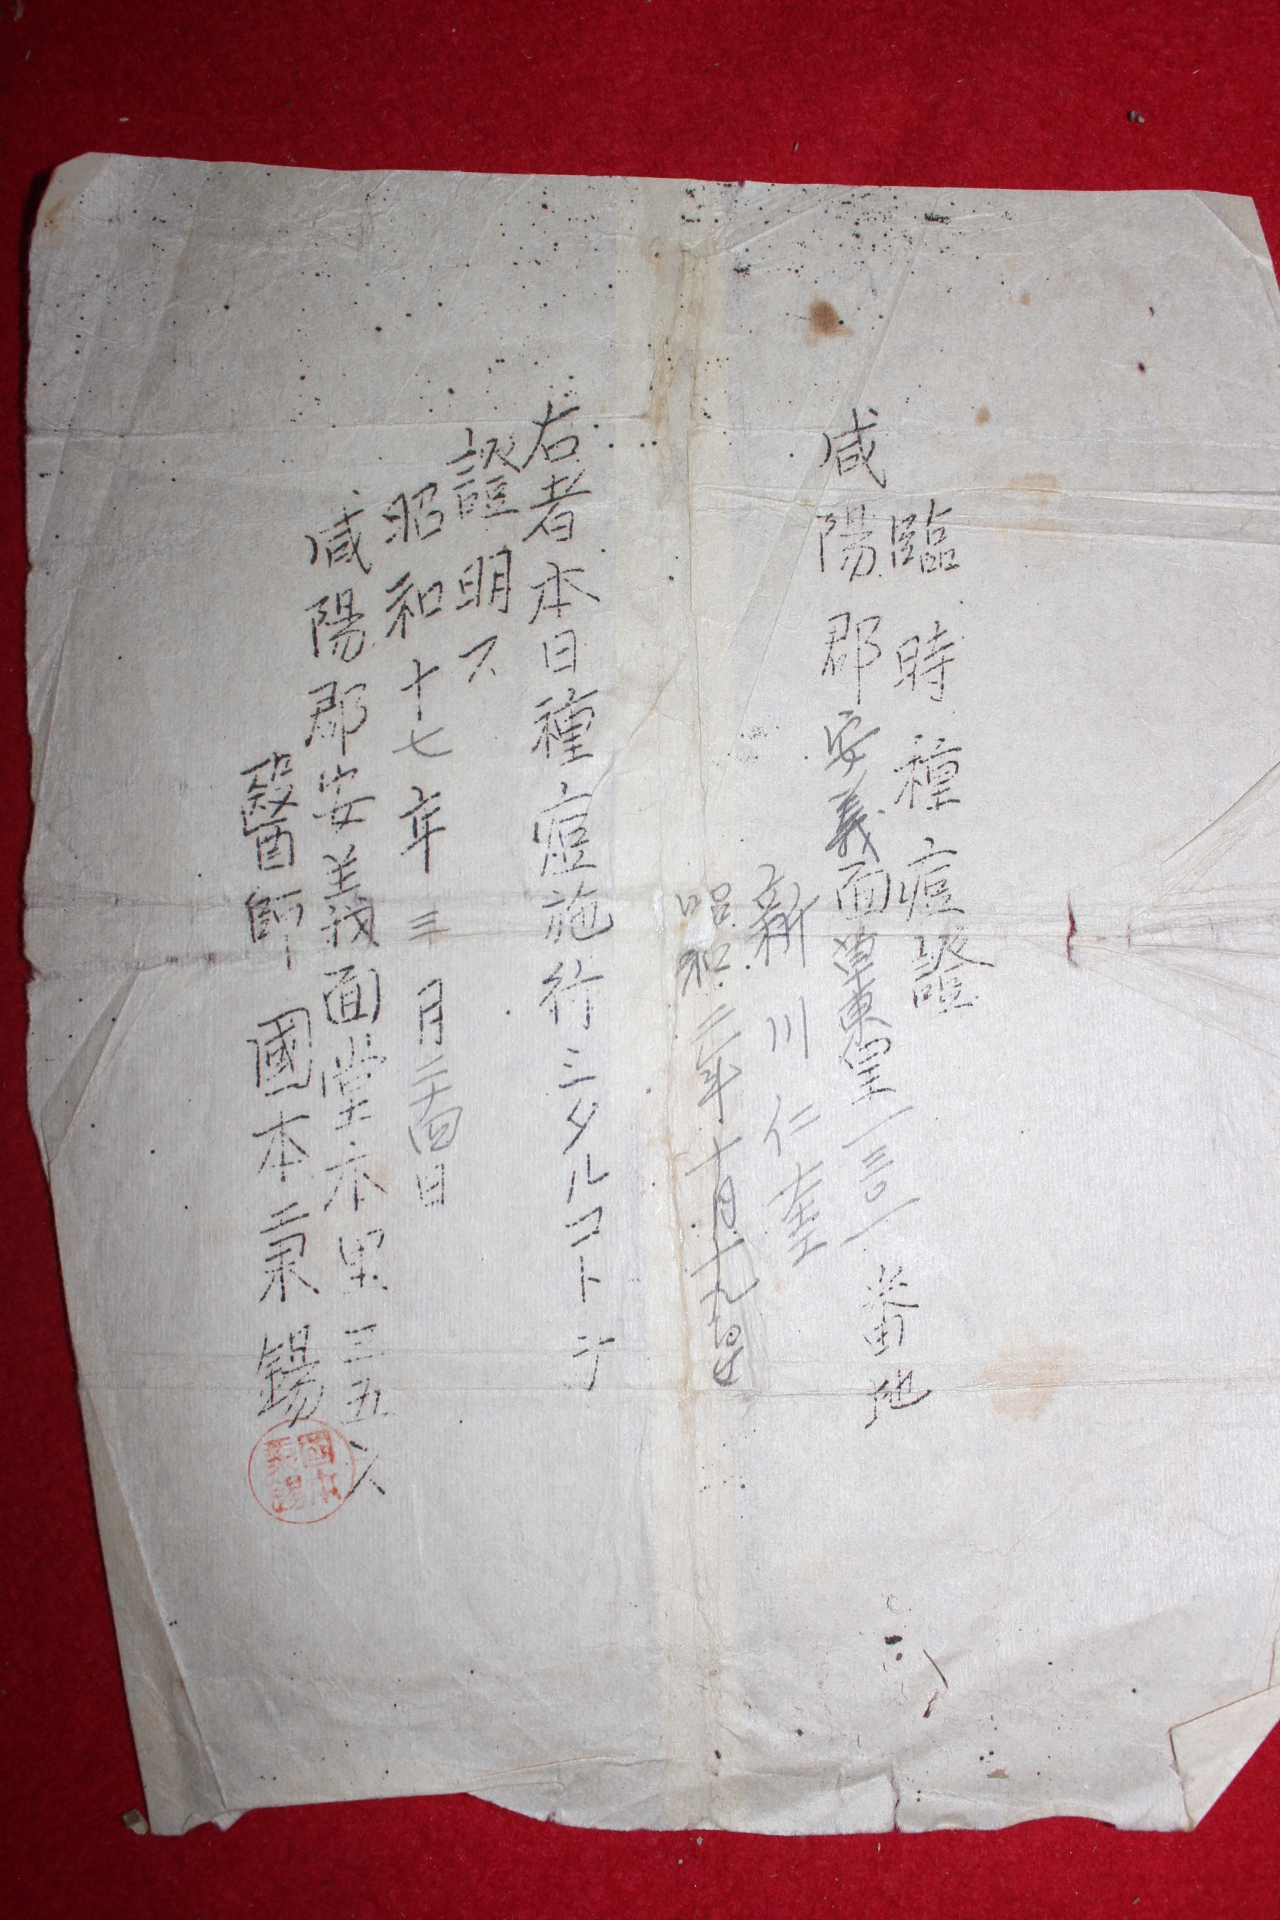 臨時種痘證
咸陽郡安義面草東里一三〇一番地
新川仁奎
昭和二年十月十九日生
右者本日種痘施行シタルコトヲ
證明ス
昭和十七年三月二十四日
咸陽郡安義面堂本里三五六
醫師 國本秉錫
國本秉錫